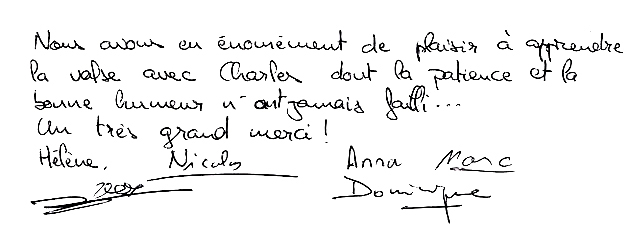 Nous avons eu énormément de plaisir à apprendre
la valse avec Charles dont la patience et la
bonne humeur n'ont jamais failli...
Un très grand merci!
Hélène, Nicolas Anna Marc
Dominique